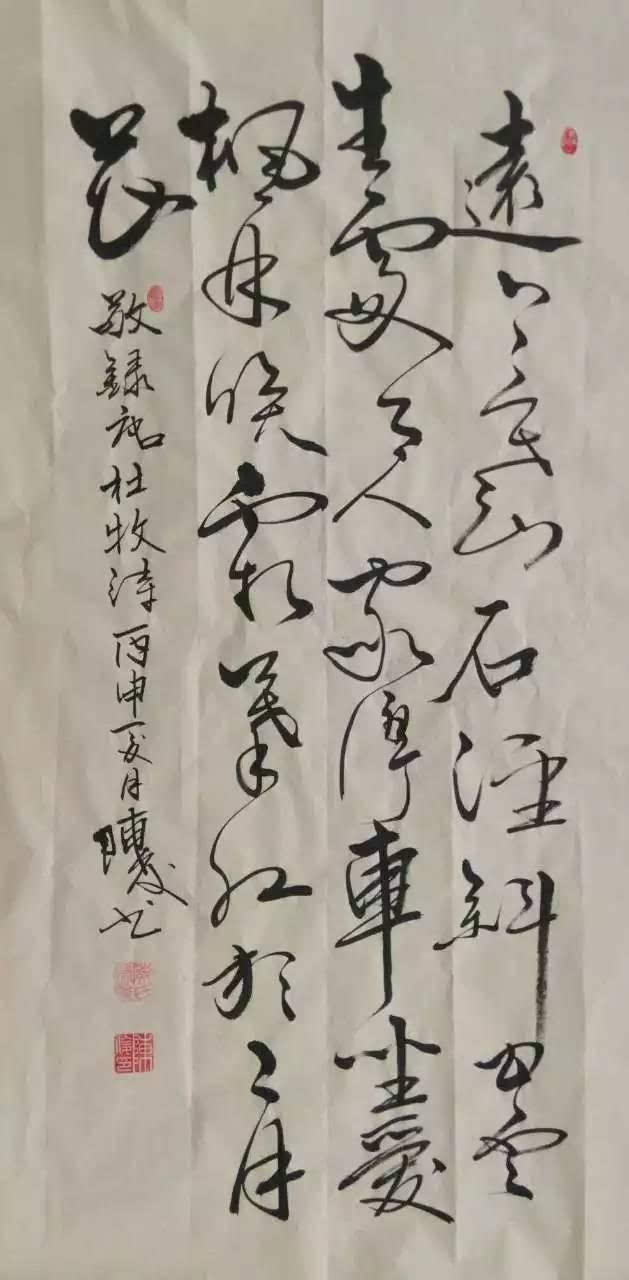 遠上寒山石徑斜白雲
生處有人家停車坐愛
楓林晚霜葉紅於二月
花
敬録唐杜牧詩丙申夏月陳书